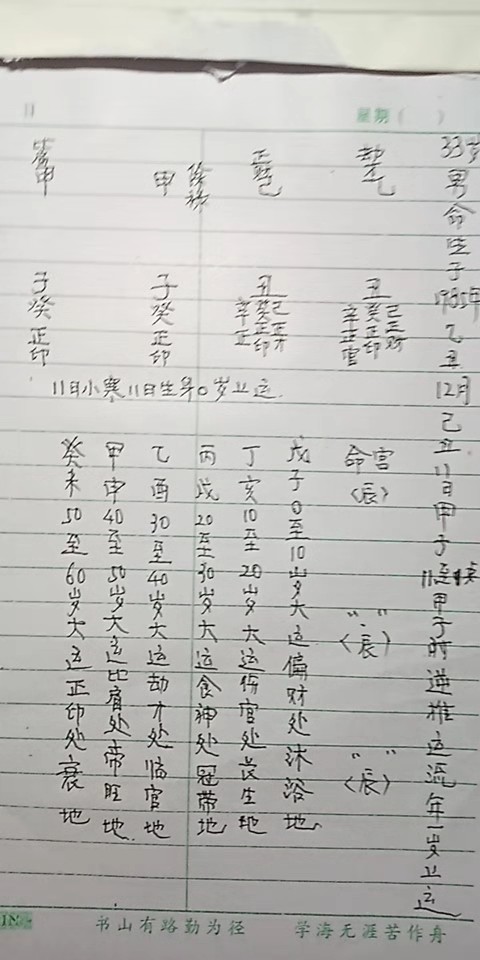 星期（　　）
33岁男命生于1985年乙丑12月己丑11日甲子11至1点甲子时逆推运流年一岁上运
劫才乙
丑
己正财
癸正印
辛正官
命宫〈辰〉
〃〃〈辰〉
〃〃〈辰〉
正财己
丑
己正才
癸正印
辛正
戊子0至10岁大运偏财处沐浴地
丁亥10至20岁大运伤官处长生地
丙戌20至30岁大运食神处冠带地
甲
子癸正印
乙酉30至40岁大运劫才处临官地
甲申40至50岁大运比肩处帝旺地
甲
子癸正印
癸未50至60岁大运正印处衰地
11日小寒11日生算0岁上运.
书山有路勤为径　　学海无涯苦作舟